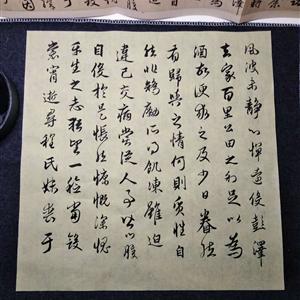 風波未静心憚遠役彭澤
去家百里公田之利足以為
酒故便求之及少日眷然
有歸歟之情何則質性自
然非矯勵所得飢凍雖迫
違己交病嘗從人事皆口腹
自役於是悵然慷慨深愧
平生之志猶望一稔當斂
裳宵逝尋程氏妹喪于